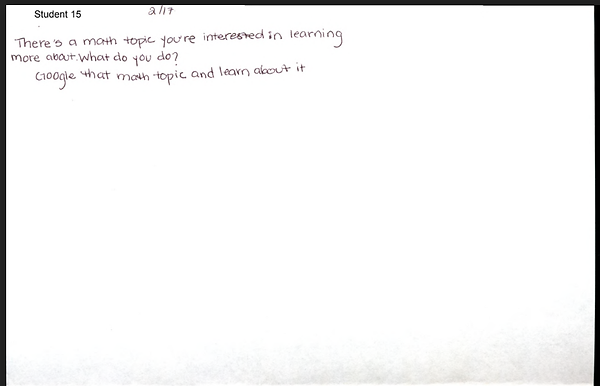 Student 15
2/17
There's a math topic you're interested in learning
more about. What do you do?
Google that math topic and learn about it